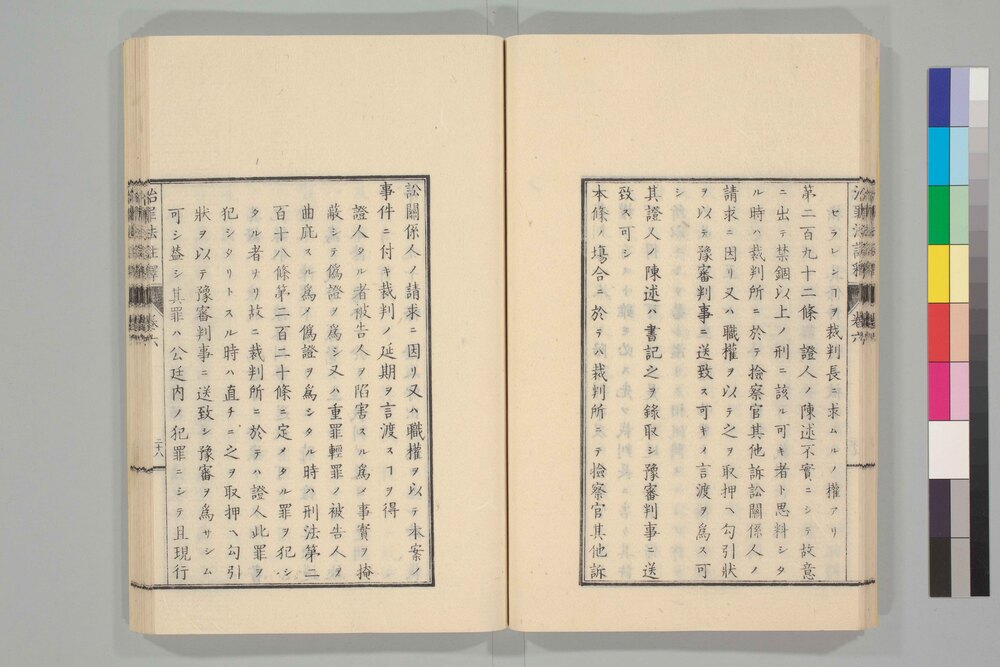 治罪法註釋 卷六
セラレンヿヲ裁判長ニ求ムルノ權アリ
第二百九十二條 證人ノ陳述不實ニシテ故意
ニ出テ禁錮以上ノ刑ニ該ル可キ者ト思料シタ
ル時ハ裁判所ニ於テ撿察官其他訴訟關係人ノ
請求ニ因リ又ハ職權ヲ以テ之ヲ取押ヘ勾引狀
ヲ以テ豫審判事ニ送致ス可キノ言渡ヲ爲ス可
シ
其證人ノ陳述ハ書記之ヲ錄取シ豫審判事ニ送
致ス可シ
本條ノ塲合ニ於テハ裁判所ニテ撿察官其他訴
訟關係人ノ請求ニ因リ又ハ職權ヲ以テ本案ノ
事件ニ付キ裁判ノ延期ヲ言渡スヿヲ得
證人タル者被告人ヲ陷害スル爲メ事實ヲ掩
蔽シテ僞證ヲ爲シ又ハ重罪輕罪ノ被告人ヲ
曲庇スル爲メ僞證ヲ爲シタル時ハ刑法第二
百十八條第二百二十條ニ定メタル罪ヲ犯シ
タル者ナリ故ニ裁判所ニ於テハ證人此罪ヲ
犯シタリトスル時ハ直チニ之ヲ取押ヘ勾引
狀ヲ以テ豫審判事ニ送致シ豫審ヲ爲サシム
可シ蓋シ其罪ハ公廷內ノ犯罪ニシテ且現行
治罪法註釋 卷六 二十八